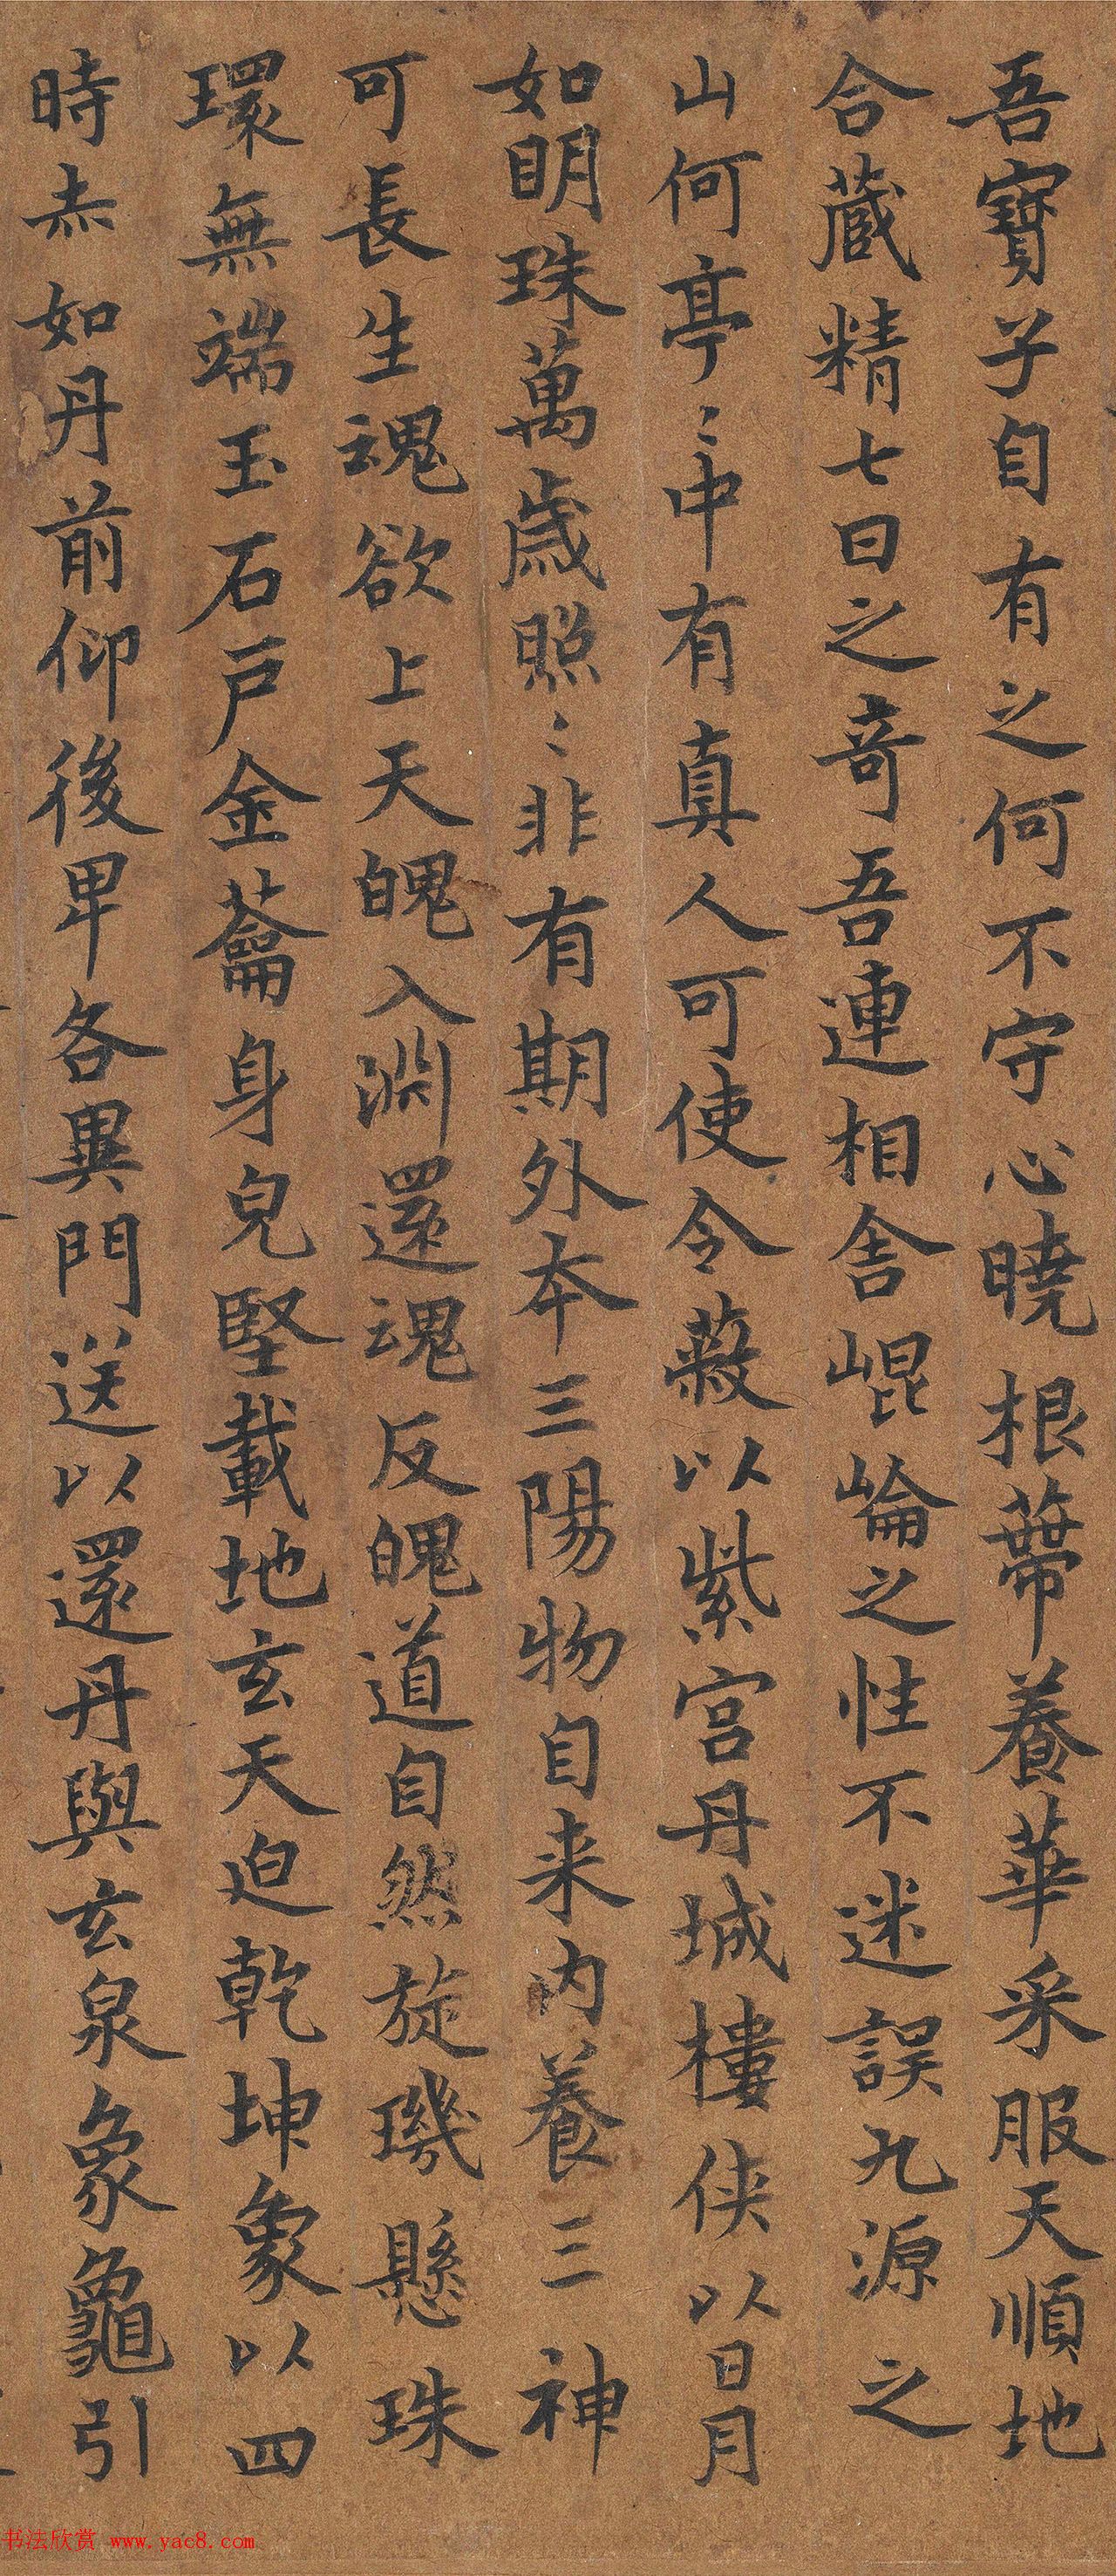 吾寶子自有之何不守心曉根蔕養華采服天順地
合藏精七日之奇吾連相舍崐崘之性不迷誤九源之
山何亭〻中有真人可使令蔽以紫宮丹城樓俠以日月
如明珠萬歲照〻非有期外本三陽物自来内養三神
可長生魂欲上天魄入淵還魂反魄道自然旋璣懸珠
環無端玉石戶金蘥身皃堅載地玄天迫乾坤象以四
時赤如丹前仰後卑各異門送以還丹與玄泉象龜引
书法欣赏 www.yac8.com